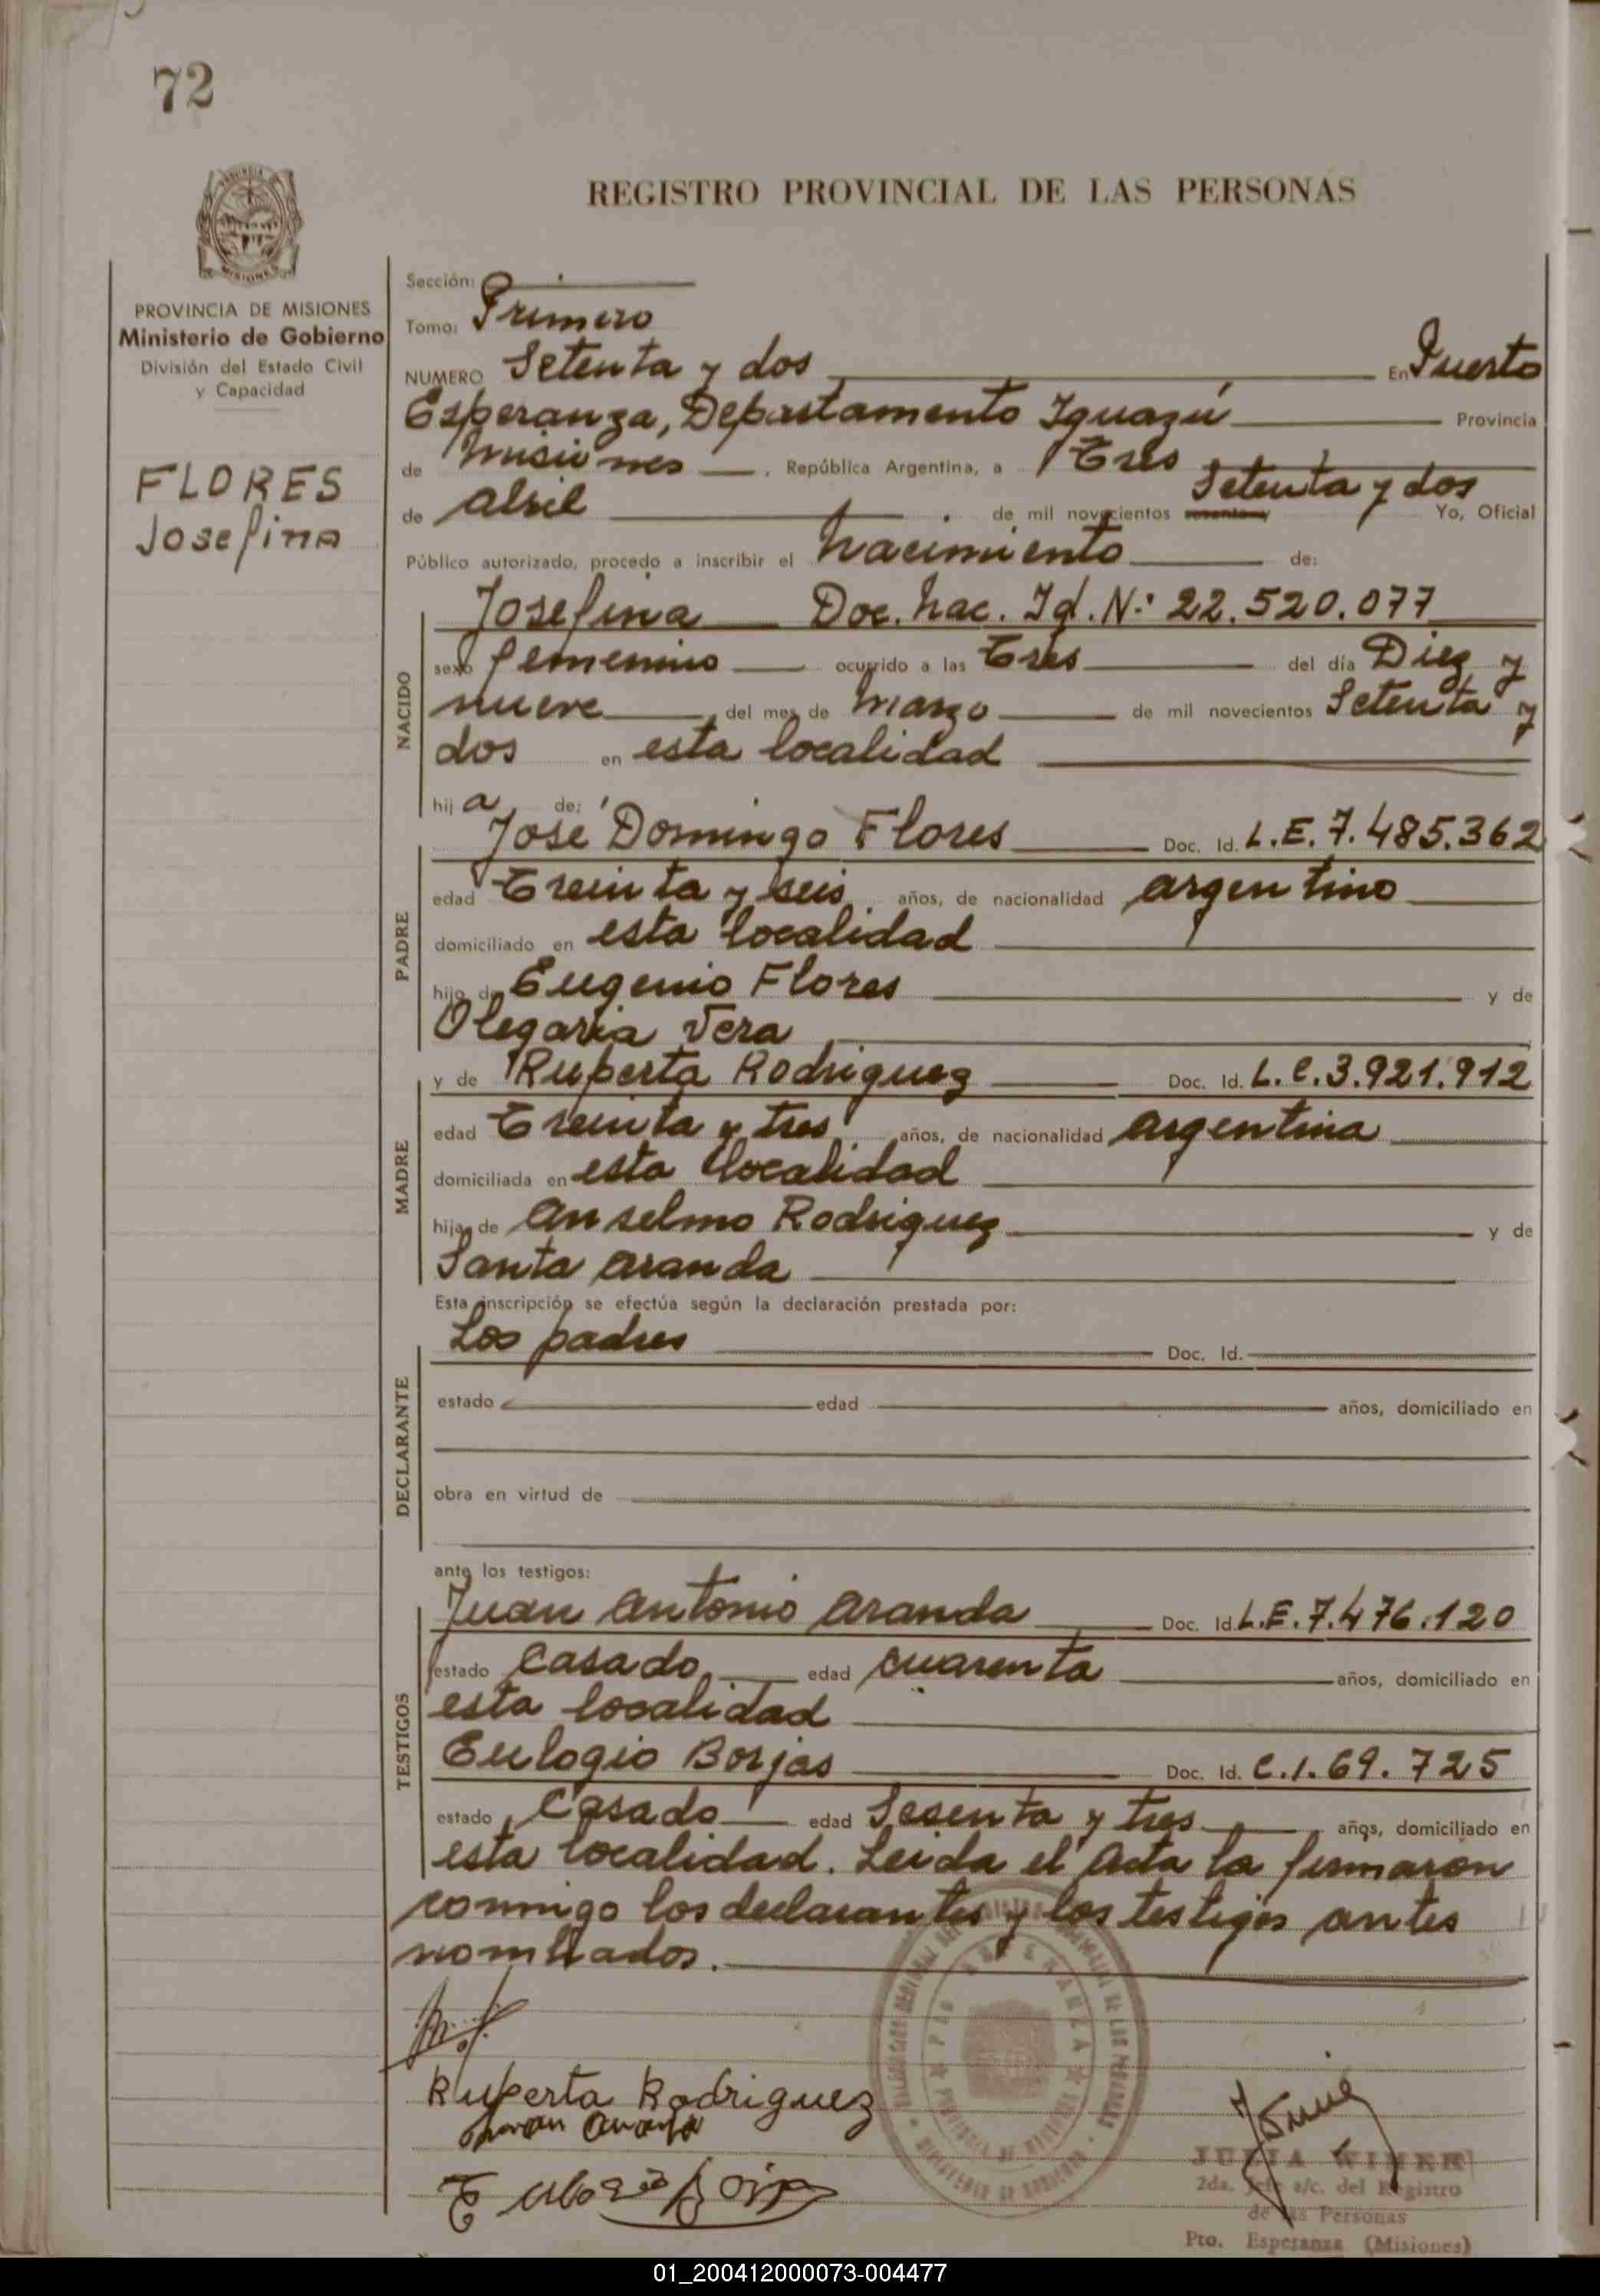 72
REGISTRO PROVINCIAL DE LAS PERSONAS
PROVINCIA DE MISIONES
Ministerio de Gobierno
División del Estado Civil
y Capacidad
FLORES
Josefina
Sección:
Tomo: Primero
NUMERO Setenta y dos En Puerto
Esperanza, Departamento Iguazú Provincia
de Misiones, República Argentina, a Tres
de abril de mil novecientos sesenta y Setenta y dos Yo, Oficial
Público autorizado, procedo a inscribir el nacimiento de:
NACIDO
Josefina Doc. Nac. Id. N: 22.520.077
sexo femenino ocurrido a las Tres del día Diez y
nueve del mes de Marzo de mil novecientos Setenta y
dos en esta localidad
hij a de:
PADRE
José Domingo Flores Doc. Id. L.E. 7.485.362
edad Treinta y seis años, de nacionalidad argentino
domiciliado en esta localidad
hijo de Eugenio Flores y de
Olegaria Vera
MADRE
y de Ruperta Rodriguez Doc. Id. L.C. 3.921.912
edad Treinta y tres años, de nacionalidad argentina
domiciliada en esta localidad
hija de Anselmo Rodriguez y de
Santa Aranda
DECLARANTE
Esta inscripción se efectúa según la declaración prestada por:
Los padres Doc. Id.
estado edad años, domiciliado en
obra en virtud de
ante los testigos:
TESTIGOS
Juan Antonio Aranda Doc. Id. L.E. 7.476.120
estado Casado edad cuarenta años, domiciliado en
esta localidad
Eulogio Borjas Doc. Id. C.I. 69.725
estado Casado edad Sesenta y tres años, domiciliado en
esta localidad. Leida el Acta la firmaron
conmigo los declarantes y los testigos antes
nombrados.
Ruperta Rodriguez
JULIA WINER
2da. Jefe a/c. del Registro
de las Personas
Pto. Esperanza (Misiones)
01_200412000073-004477